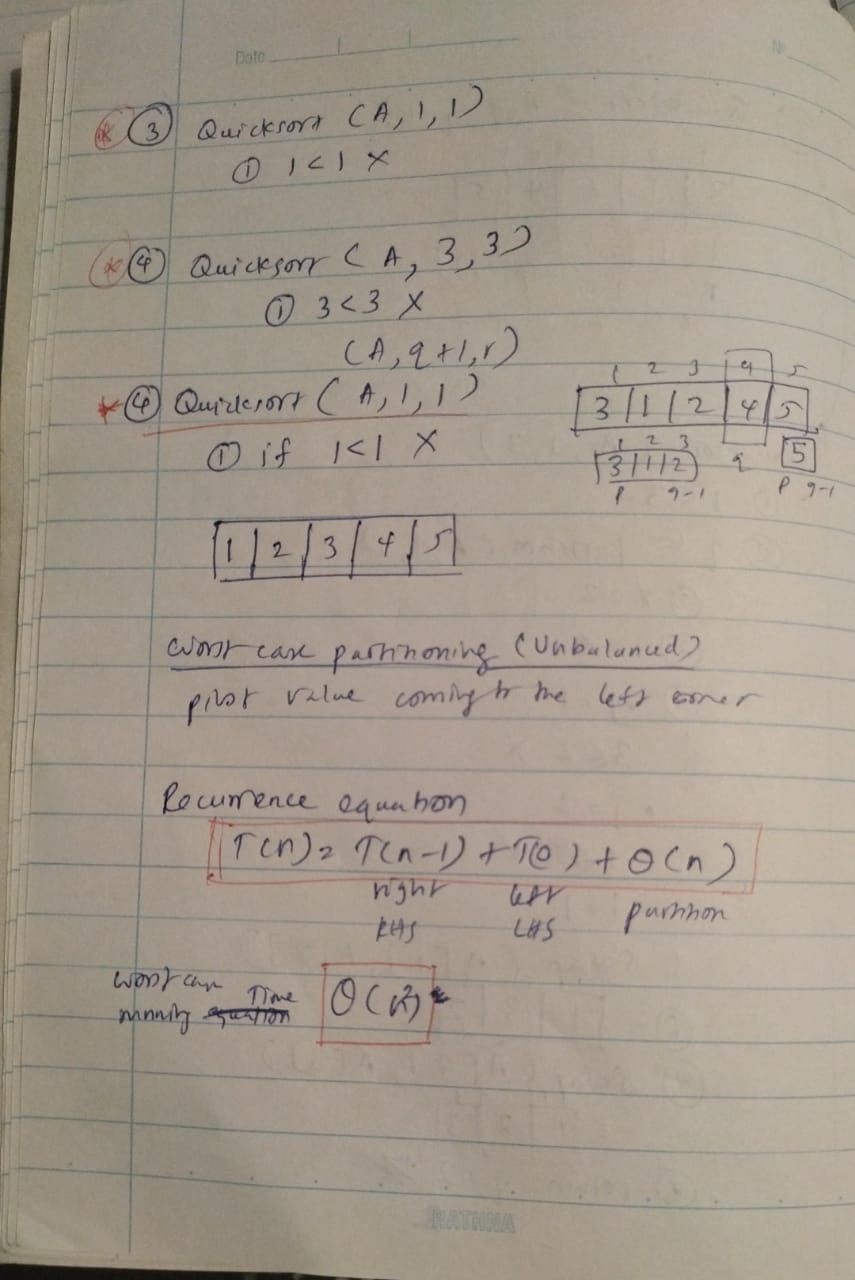 Date
No
* ③ Quicksort (A, 1, 1)
① 1<1 ×
* ④ Quicksort (A, 3, 3)
① 3<3 ×
(A, q+1, r)
* ④ Quicksort (A, 1, 1)
① if 1<1 ×
1 2 3 4 5
3 1 2 4 5
1 2 3
3 1 2 q 5
p q-1 p q-1
1 2 3 4 5
Worst case partinoning (Unbalanced)
pivot value coming to the left corner
Recurrence equation
T(n) = T(n-1) + T(0) + Θ(n)
right left partition
RHS LHS
Worst case Time
running equation Θ(n²)
RATHNA